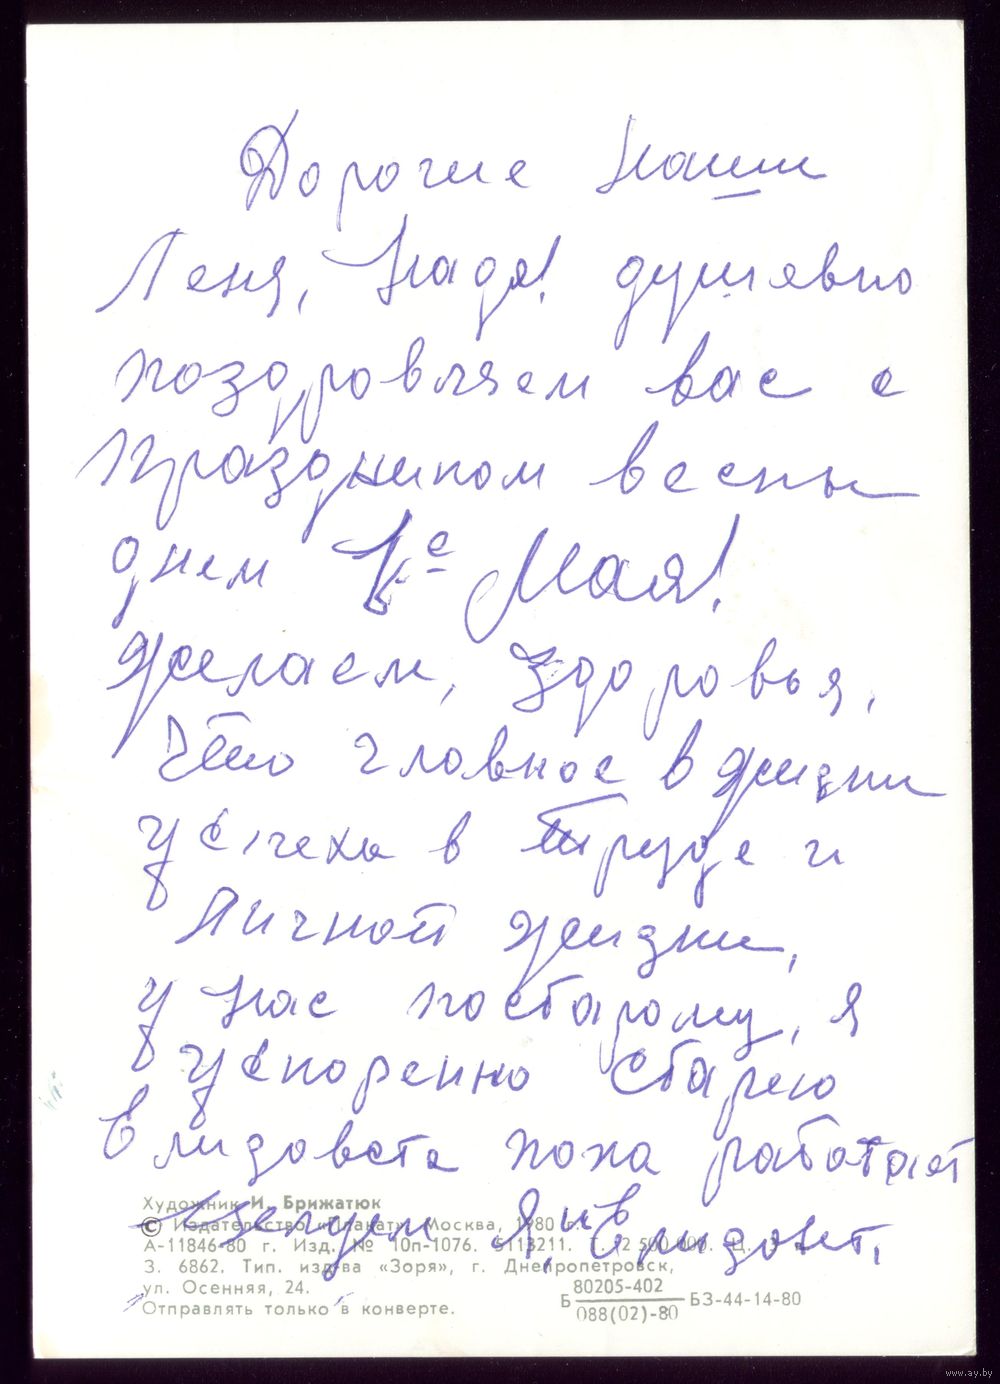 Дорогие наши
Леня, Надя! душевно
поздровляем вас с
праздником весны
днем 1е Мая!
Желаем, здоровья,
что главное в жизни
успеха в труде и
личной жизни,
у нас постарому, я
ускоренно старею
пока работает
Художник И. Брижатюк
© Издательство «Плакат», Москва, 1980 г.
целуем Я,
А-11846-80 г. Изд. № 10п-1076. 5113211. Т. 2 500 000. Ц.
З. 6862. Тип. изд-ва «Зоря», г. Днепропетровск,
ул. Осенняя, 24.
Отправлять только в конверте.
Б 80205-402 БЗ-44-14-80
088(02)-80
www.ay.by